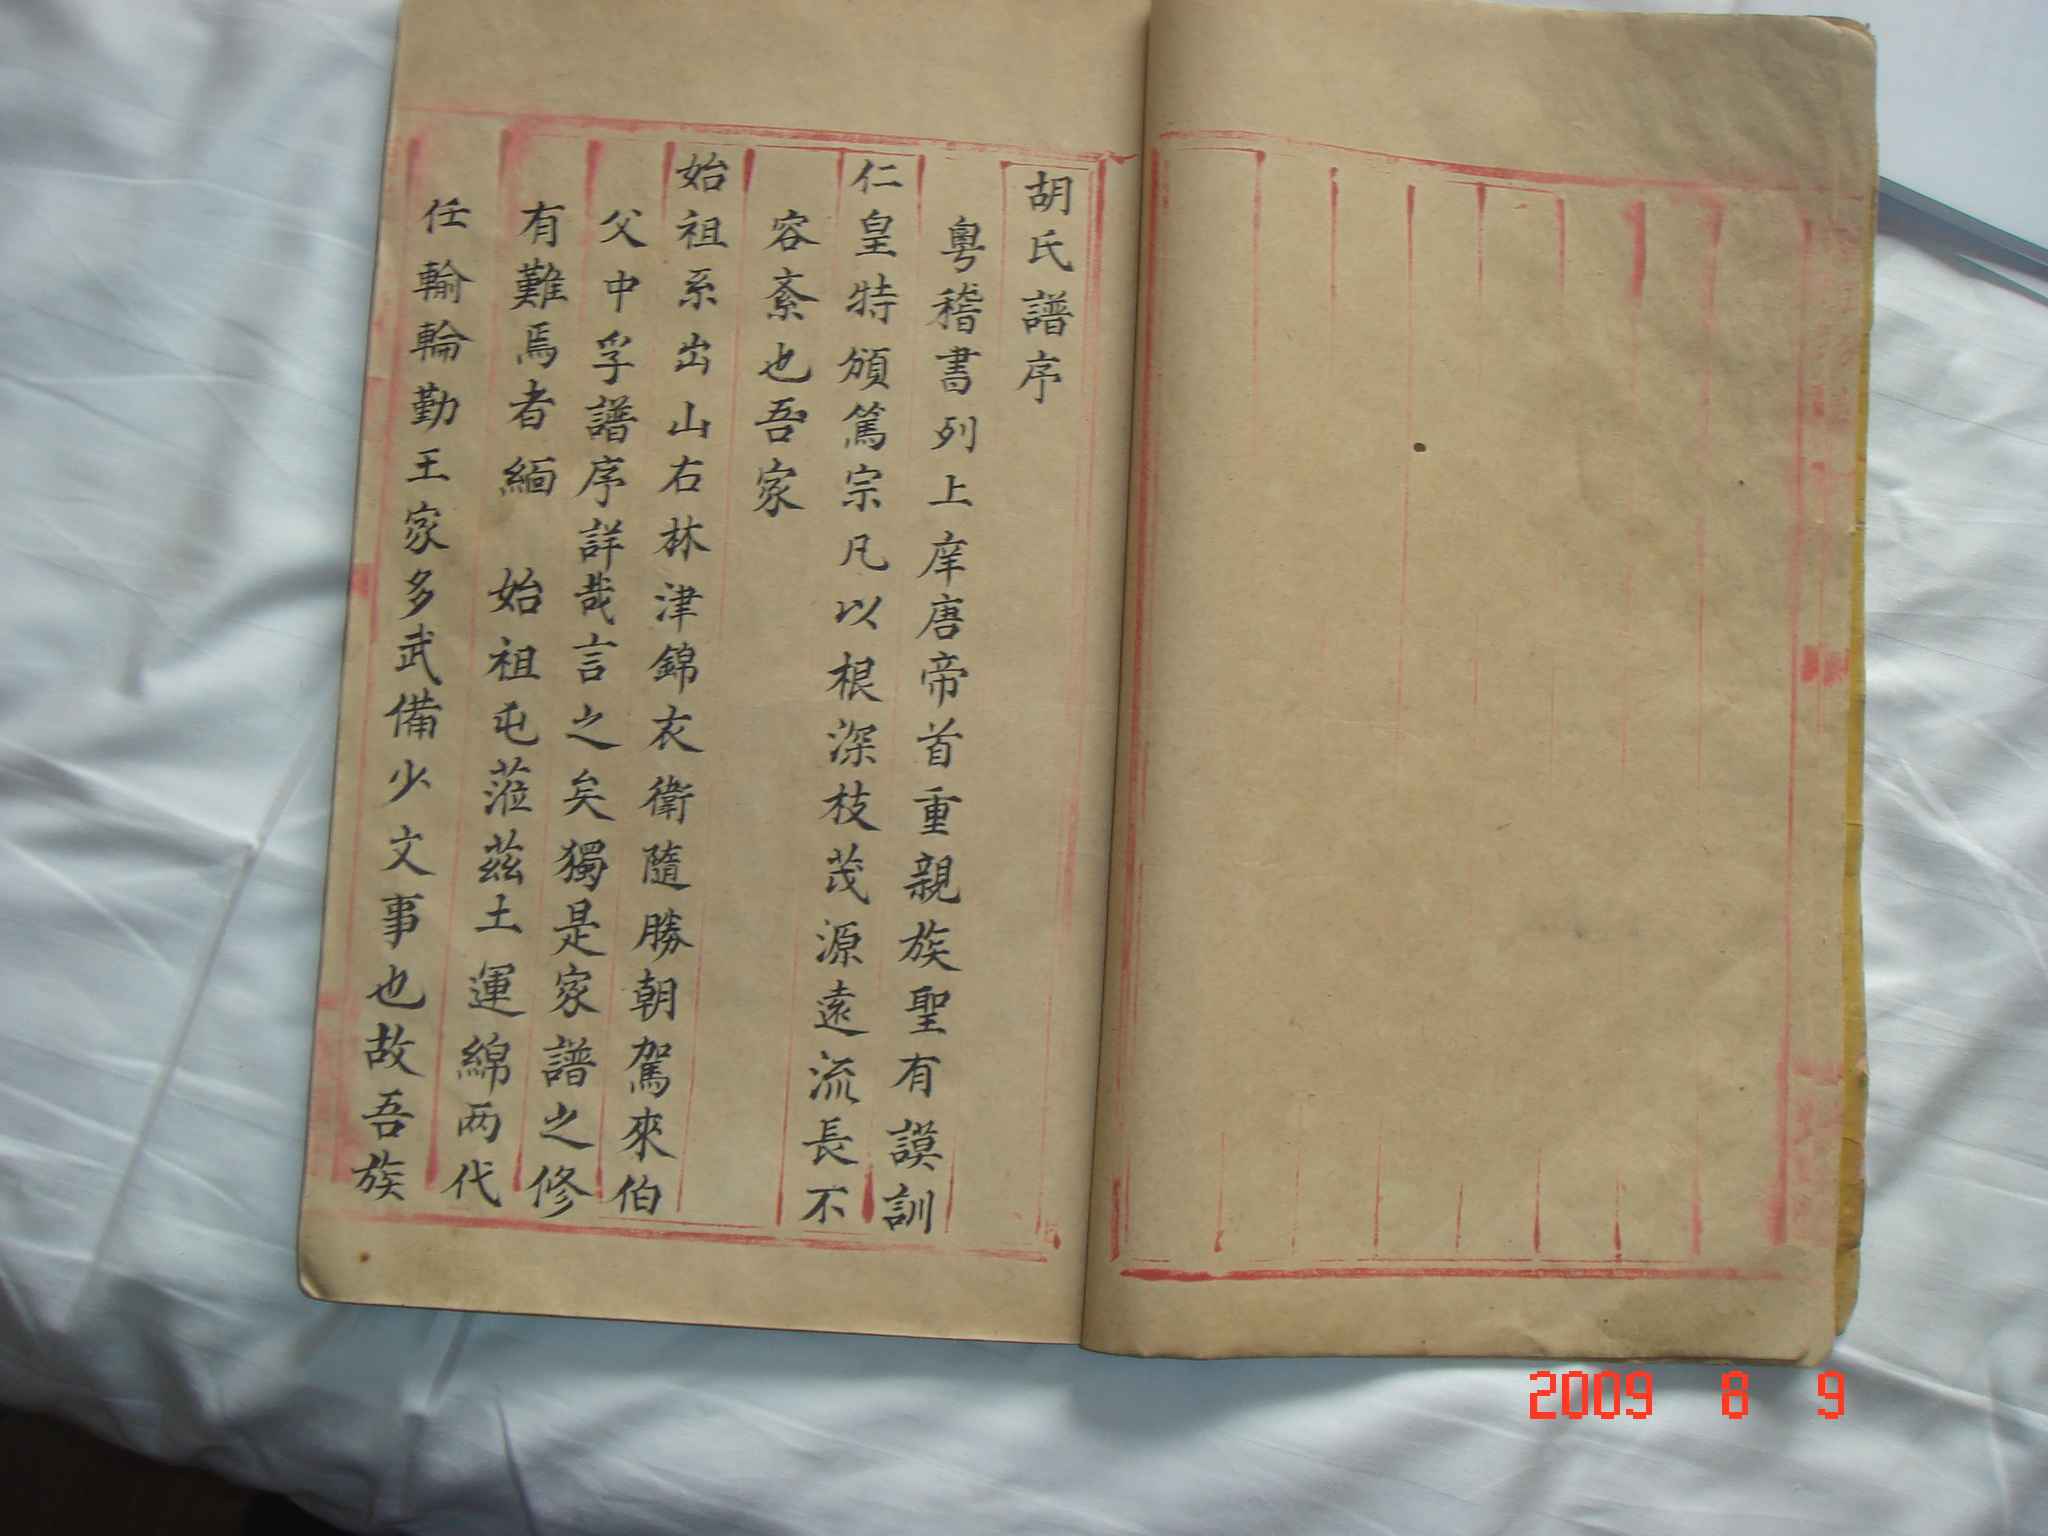 胡氏譜序
粵稽書列上庠唐帝首重親族聖有謨訓
仁皇特頒篤宗凡以根深枝茂源遠流長不
容紊也吾家
始祖系出山右林津錦衣衛隨勝朝駕來伯
父中孚譜序詳哉言之矣獨是家譜之修
有難焉者緬 始祖屯蒞茲土運綿两代
任輸輪勤王家多武備少文事也故吾族
2009 8 9